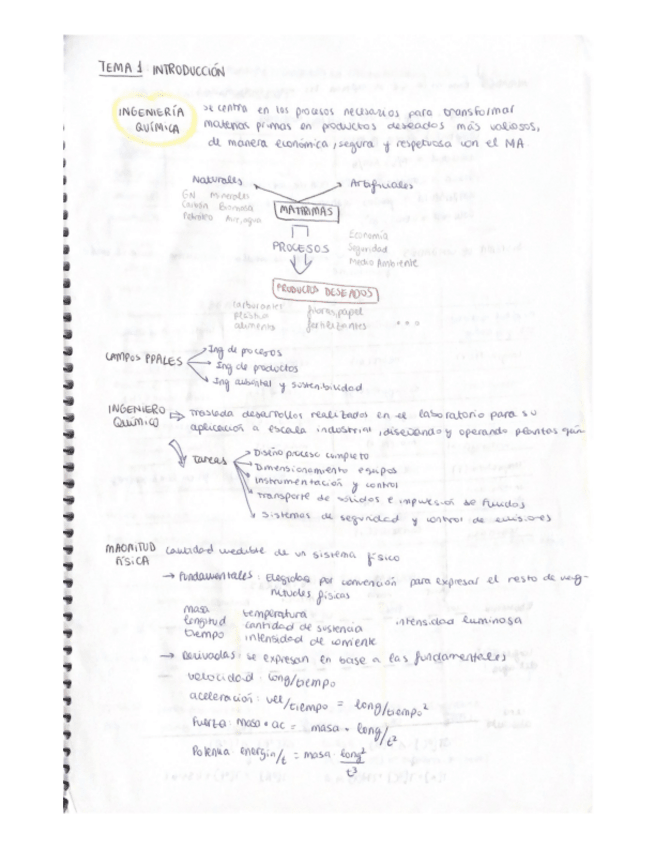 TEMA 1 INTRODUCCIÓN
INGENIERÍA QUÍMICA
se centra en los procesos necesarios para transformar
materias primas en productos deseados más valiosos,
de manera económica, segura y respetuosa con el MA
Naturales Artificiales
GN Minerales
Carbón Biomasa
Petróleo Aire, agua
MAT PRIMAS
PROCESOS
Economía
Seguridad
Medio Ambiente
PRODUCTOS DESEADOS
carburantes fibras, papel
plástico fertilizantes
alimentos ...
CAMPOS PPALES
Ing de procesos
Ing de productos
Ing ambiental y sostenibilidad
INGENIERO QUÍMICO
traslada desarrollos realizados en el laboratorio para su
aplicación a escala industrial, diseñando y operando plantas quím
TAREAS
Diseño proceso completo
Dimensionamiento equipos
Instrumentación y control
Transporte de sólidos e impulsión de fluidos
Sistemas de seguridad y control de emisiones
MAGNITUD FÍSICA
cantidad medible de un sistema físico
→ Fundamentales: Elegidas por convención para expresar el resto de mag-
nitudes físicas
masa temperatura
longitud cantidad de sustancia intensidad luminosa
tiempo intensidad de corriente
→ Derivadas: se expresan en base a las fundamentales
velocidad: long/tiempo
aceleración: vel/tiempo = long/tiempo²
Fuerza: masa • ac = masa • long/t²
Potencia energía/t = masa · long²/t³